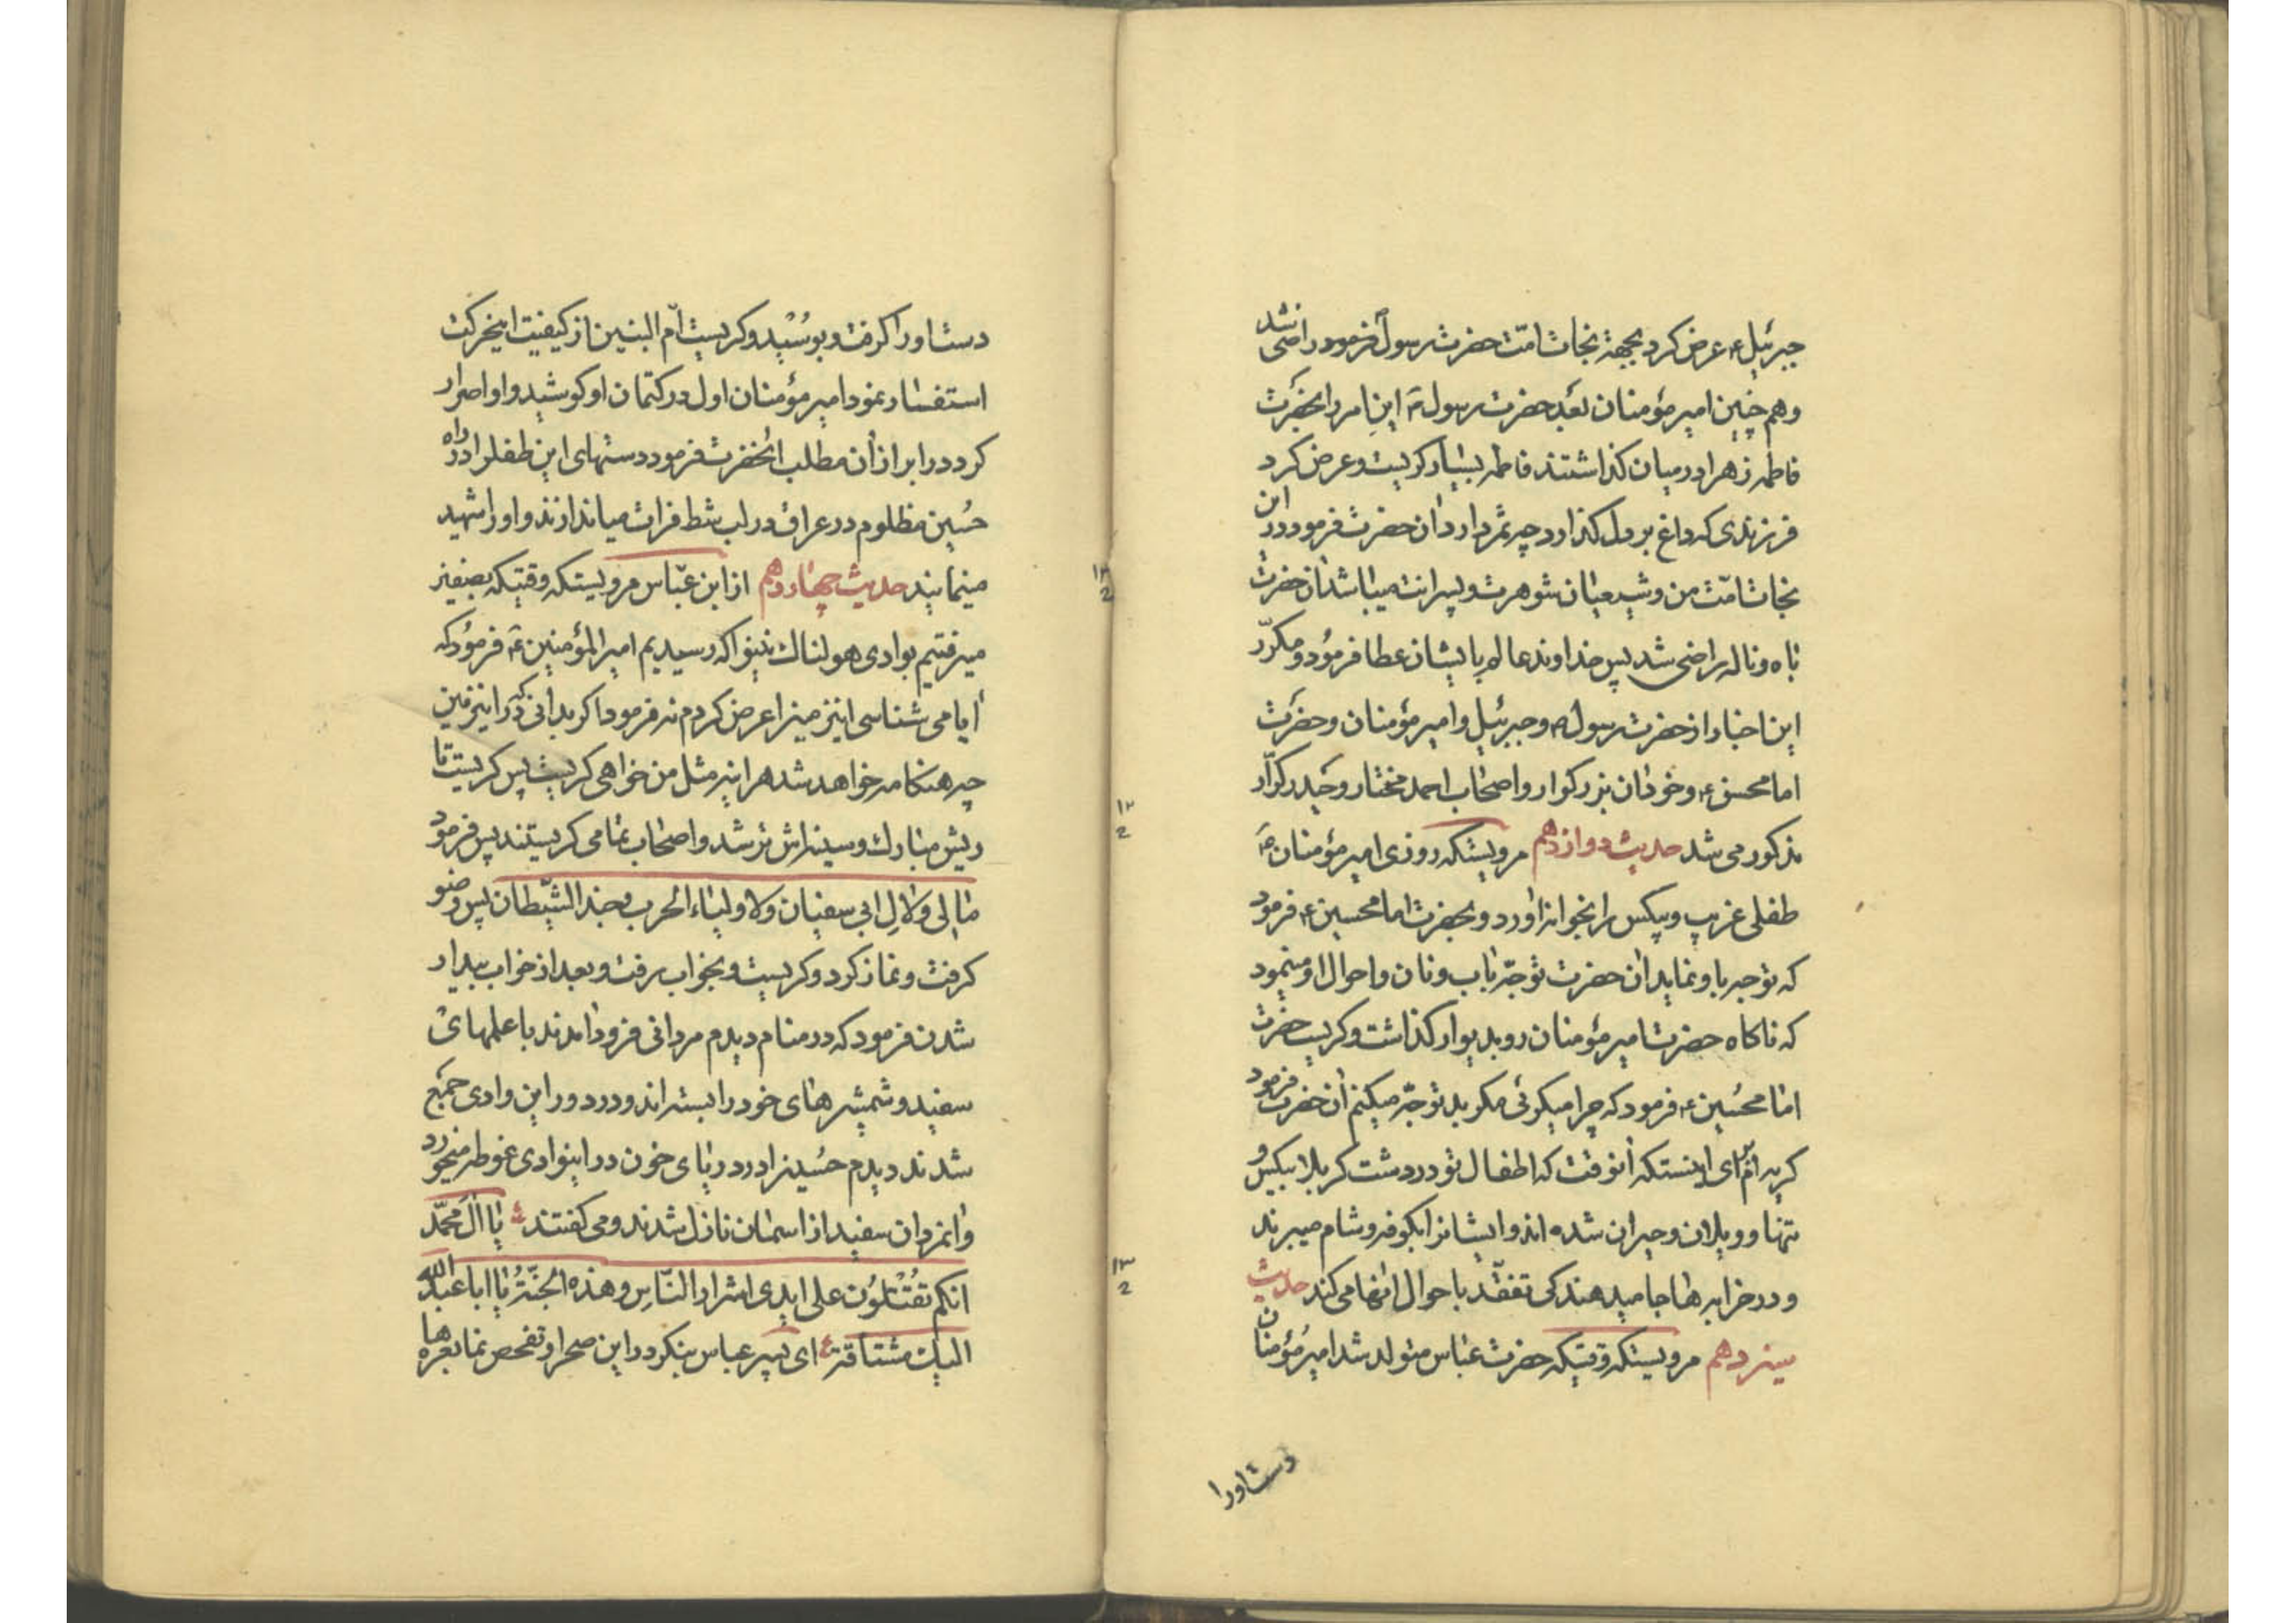 جبرئیل ع عرض کرد بجهة نجات امّت حضرت رسول فرمود راضی شد
و هم چنین امیر مؤمنان بعد حضرت رسول ص این امر را بحضرت
فاطمه زهرا در میان گذاشتند فاطمه بسیار کریست و عرض کرد
فرزندی که داغ بر دل گذارد چه ثمر دارد ان حضرت فرمود در این
نجات امّت من و شیعیان شوهرت و پسرانت میباشد ان حضرت
باه و ناله راضی شد پس خداوند عالم بایشان عطا فرمود و مکرّر
این اخبار از حضرت رسول ص و جبرئیل و امیر مؤمنان و حضرت
امام حسن ع و خودان بزرکوار و اصحاب احمد مختار و حیدر کرّار
مذکور می شد حدیث دوازدهم مرویستکه روزی امیر مؤمنان ع
طفلی غریب و بیکس را بخوانه اورد و بحضرت امام حسین ع فرمود
که توجه باو نماید ان حضرت توجّه باب و نان و احوال او مینمود
که ناکاه حضرت امیر مؤمنان رو بدیوار کذاشت و کریست حضرت
امام حسین ع فرمود که چرا میکرئی مکر بد توجّه میکنم ان حضرت فرمود
کریه ام برای اینستکه انوقت که اطفال تو در دشت کربلا بیکس و
تنها و ویلان و حیران شده اند و ایشانرا بکوفه و شام میبرند
و در خرابه ها جا میدهند کی تفقّد باحوال انها می کند حدیث
سیزدهم مرویستکه وقتیکه حضرت عباس متولد شد امیر مؤمنان
دست او را
دست او را کرفت و بوسید و کریست امّ البنین از کیفیت اینحرکت
استفسار نمود امیر مؤمنان اول در کتمان او کوشید و او اصرار
کرد در ابراز ان مطلب انحضرت فرمود دستهای این طفل را در راه
حسین مظلوم در عراق در لب شط فرات میاندازند و او را شهید
مینمایند حدیث چهاردهم از ابن عبّاس مرویستکه وقتیکه بصفین
میرفتیم بوادی هولناک نینوا که رسیدیم امیر المؤمنین ع فرمود که
ایا می شناسی اینزمین را عرض کردم نه فرمود اکر بدانی که در اینزمین
چه هنکامه خواهد شد هر اینه مثل من خواهی کریست پس کریست تا
ریش مبارک و سینه اش تر شد و اصحاب تمامی کریستند پس فرمود
مالی و لال ابی سفیان و لاولیاء الحرب و جند الشیطان پس وضو
کرفت و نماز کرد و کریست و بخواب رفت و بعد از خواب بیدار
شدن فرمود که در منام دیدم مردانی فرود امدند با علمهای
سفید و شمشیرهای خود را بسته اند و در دور این وادی جمع
شدند دیدم حسین را در دریای خون در اینوادی غوطه میخورد
و انمردان سفید از اسمان نازل شدند و می کفتند یا ال محمّد
انکم تقتلون علی ایدی اشرار النّاس و هذه الجنّة یا ابا عبد الله
الیک مشتاقة ای پسر عباس بنکر در این صحرا و تفحص نما بعره ها
۱۲
۱۳